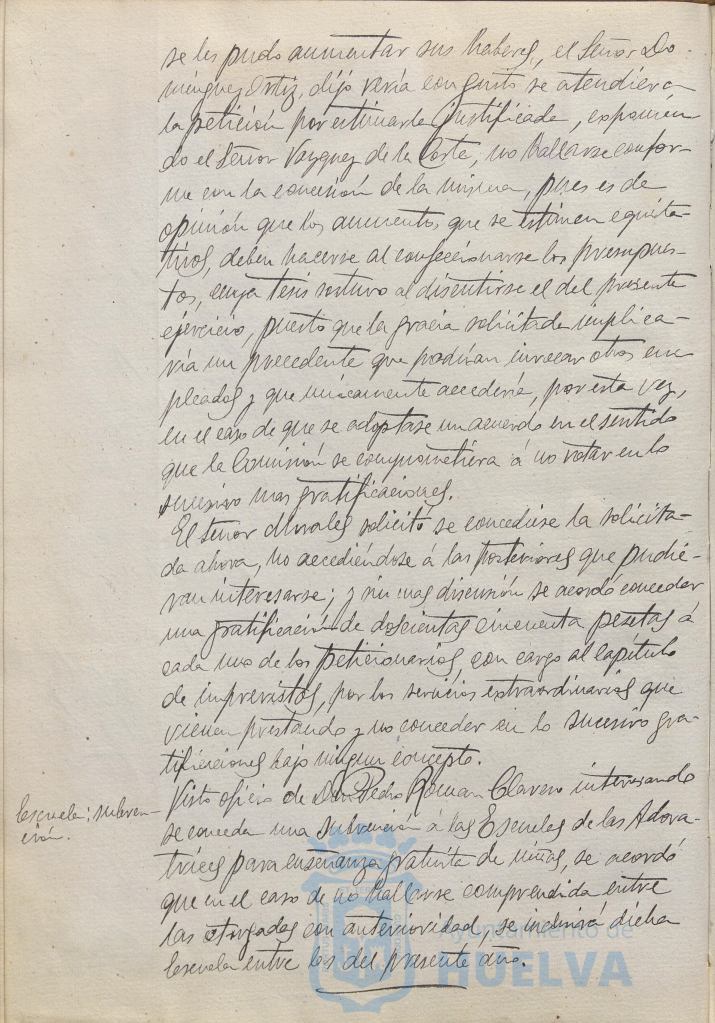 se les pudo aumentar sus haberes, el Señor Do-
minguez Ortiz, dijo vería con gusto se atendiera
la petición por estimarla justificada, exponien
do el Señor Vazquez de la Corte, no hallarse confor-
me con la concesión de la misma, pues es de
opinión que los aumentos que se estimen equita-
tivos, deben hacerse al confeccionarse los presupues-
tos, cuya tesis sostuvo al discutirse el del presente
ejercicio, puesto que la gracia solicitada implica-
ría un precedente que podrían invocar otros em
pleados y que unicamente accedería, por esta vez,
en el caso de que se adoptase un acuerdo en el sentido
que la Comisión se comprometiera á no votar en lo
sucesivo mas gratificaciones.
El Señor Morales solicitó se concediese la solicita-
da ahora, no accediéndose á las posteriores que pudie-
ran interesarse; y sin mas discusión se acordó conceder
una gratificación de doscientas cincuenta pesetas á
cada uno de los peticionarios con cargo al capítulo
de imprevistos, por los servicios extraordinarios que
vienen prestando y no conceder en lo sucesivo gra-
tificaciones bajo ningun concepto.
Escuela; subven-
ción.
Visto oficio de Don Pedro Roman Clavero interesando
se conceda una subvencion á las Escuelas de las Adora-
trices para enseñanza gratuita de niñas, se acordó
que en el caso de no hallarse comprendida entre
las otorgadas con anterioridad, se incluirá dicha
Escuela entre las del presente año.
Ayuntamiento de
HUELVA